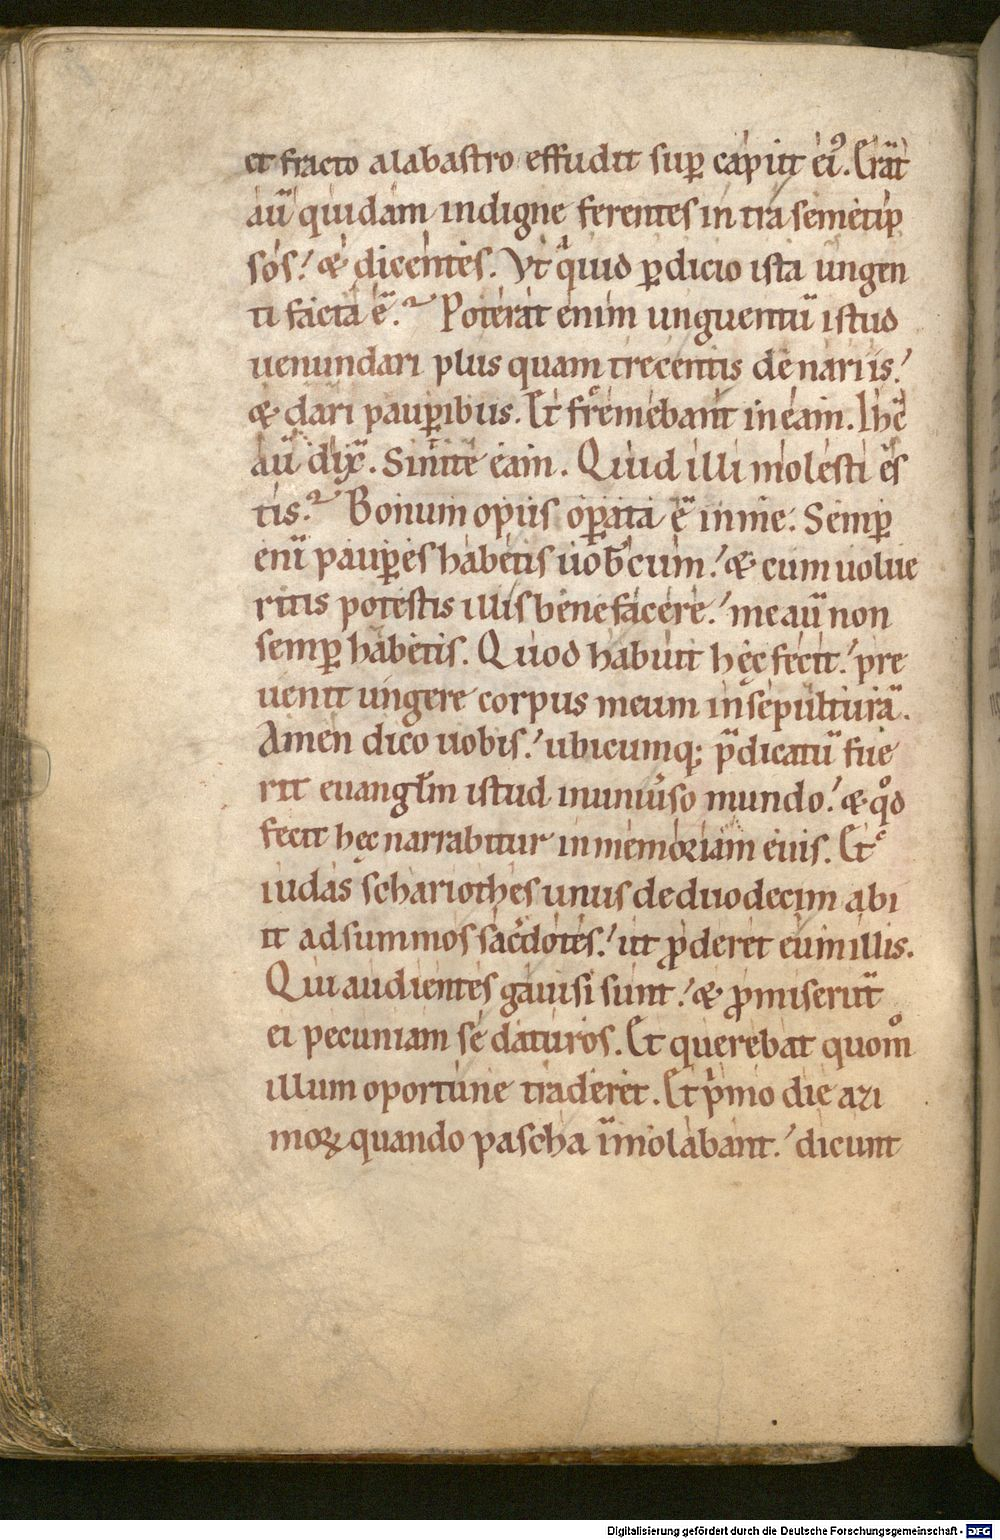 et fracto alabastro effudit sup̄ capitt ei᷒. Erāt
aū quidam indigne ferentes intra semetip
sos! & dicentes. Vt quid p̄dicio ista ungen
ti facta ē? Poterat enim unguentū istud
uenundari plus quam trecentis denariis!
& dari paup̄ibus. Et fremebant in eam. Ihc̄
aū dix̄. Sinite eam. Quid illi molesti es
tis? Bonum opus op̄ata ē in me. Semp̄
eni paup̄es habetis uobcum! & cum uolue
ritis potestis illis benefacere! me aū non
semp̄ habetis. Quod habuit hęc fecit! pre
uenit ungere corpus meum in sepulturā.
Amen dico uobis! ubicumq; p̄dicatū fue
rit euangl̄m istud in uniu̓so mundo! & qd̊
fecit hęc narrabitur in memoriam eius. Et
iudas schariothes unus de duodecim abi
it ad summos sac̓dotes! ut ꝓderet eum illis.
Qui audientes gauisi sunt! & ꝓmiserūt
ei pecuniam se daturos. Et querebat quom̊
illum oportune traderet. Et pͥmo die azi
moꝝ quando pascha īmolabant! dicunt
Digitalisierung gefördert durch die Deutsche Forschungsgemeinschaft - DFG